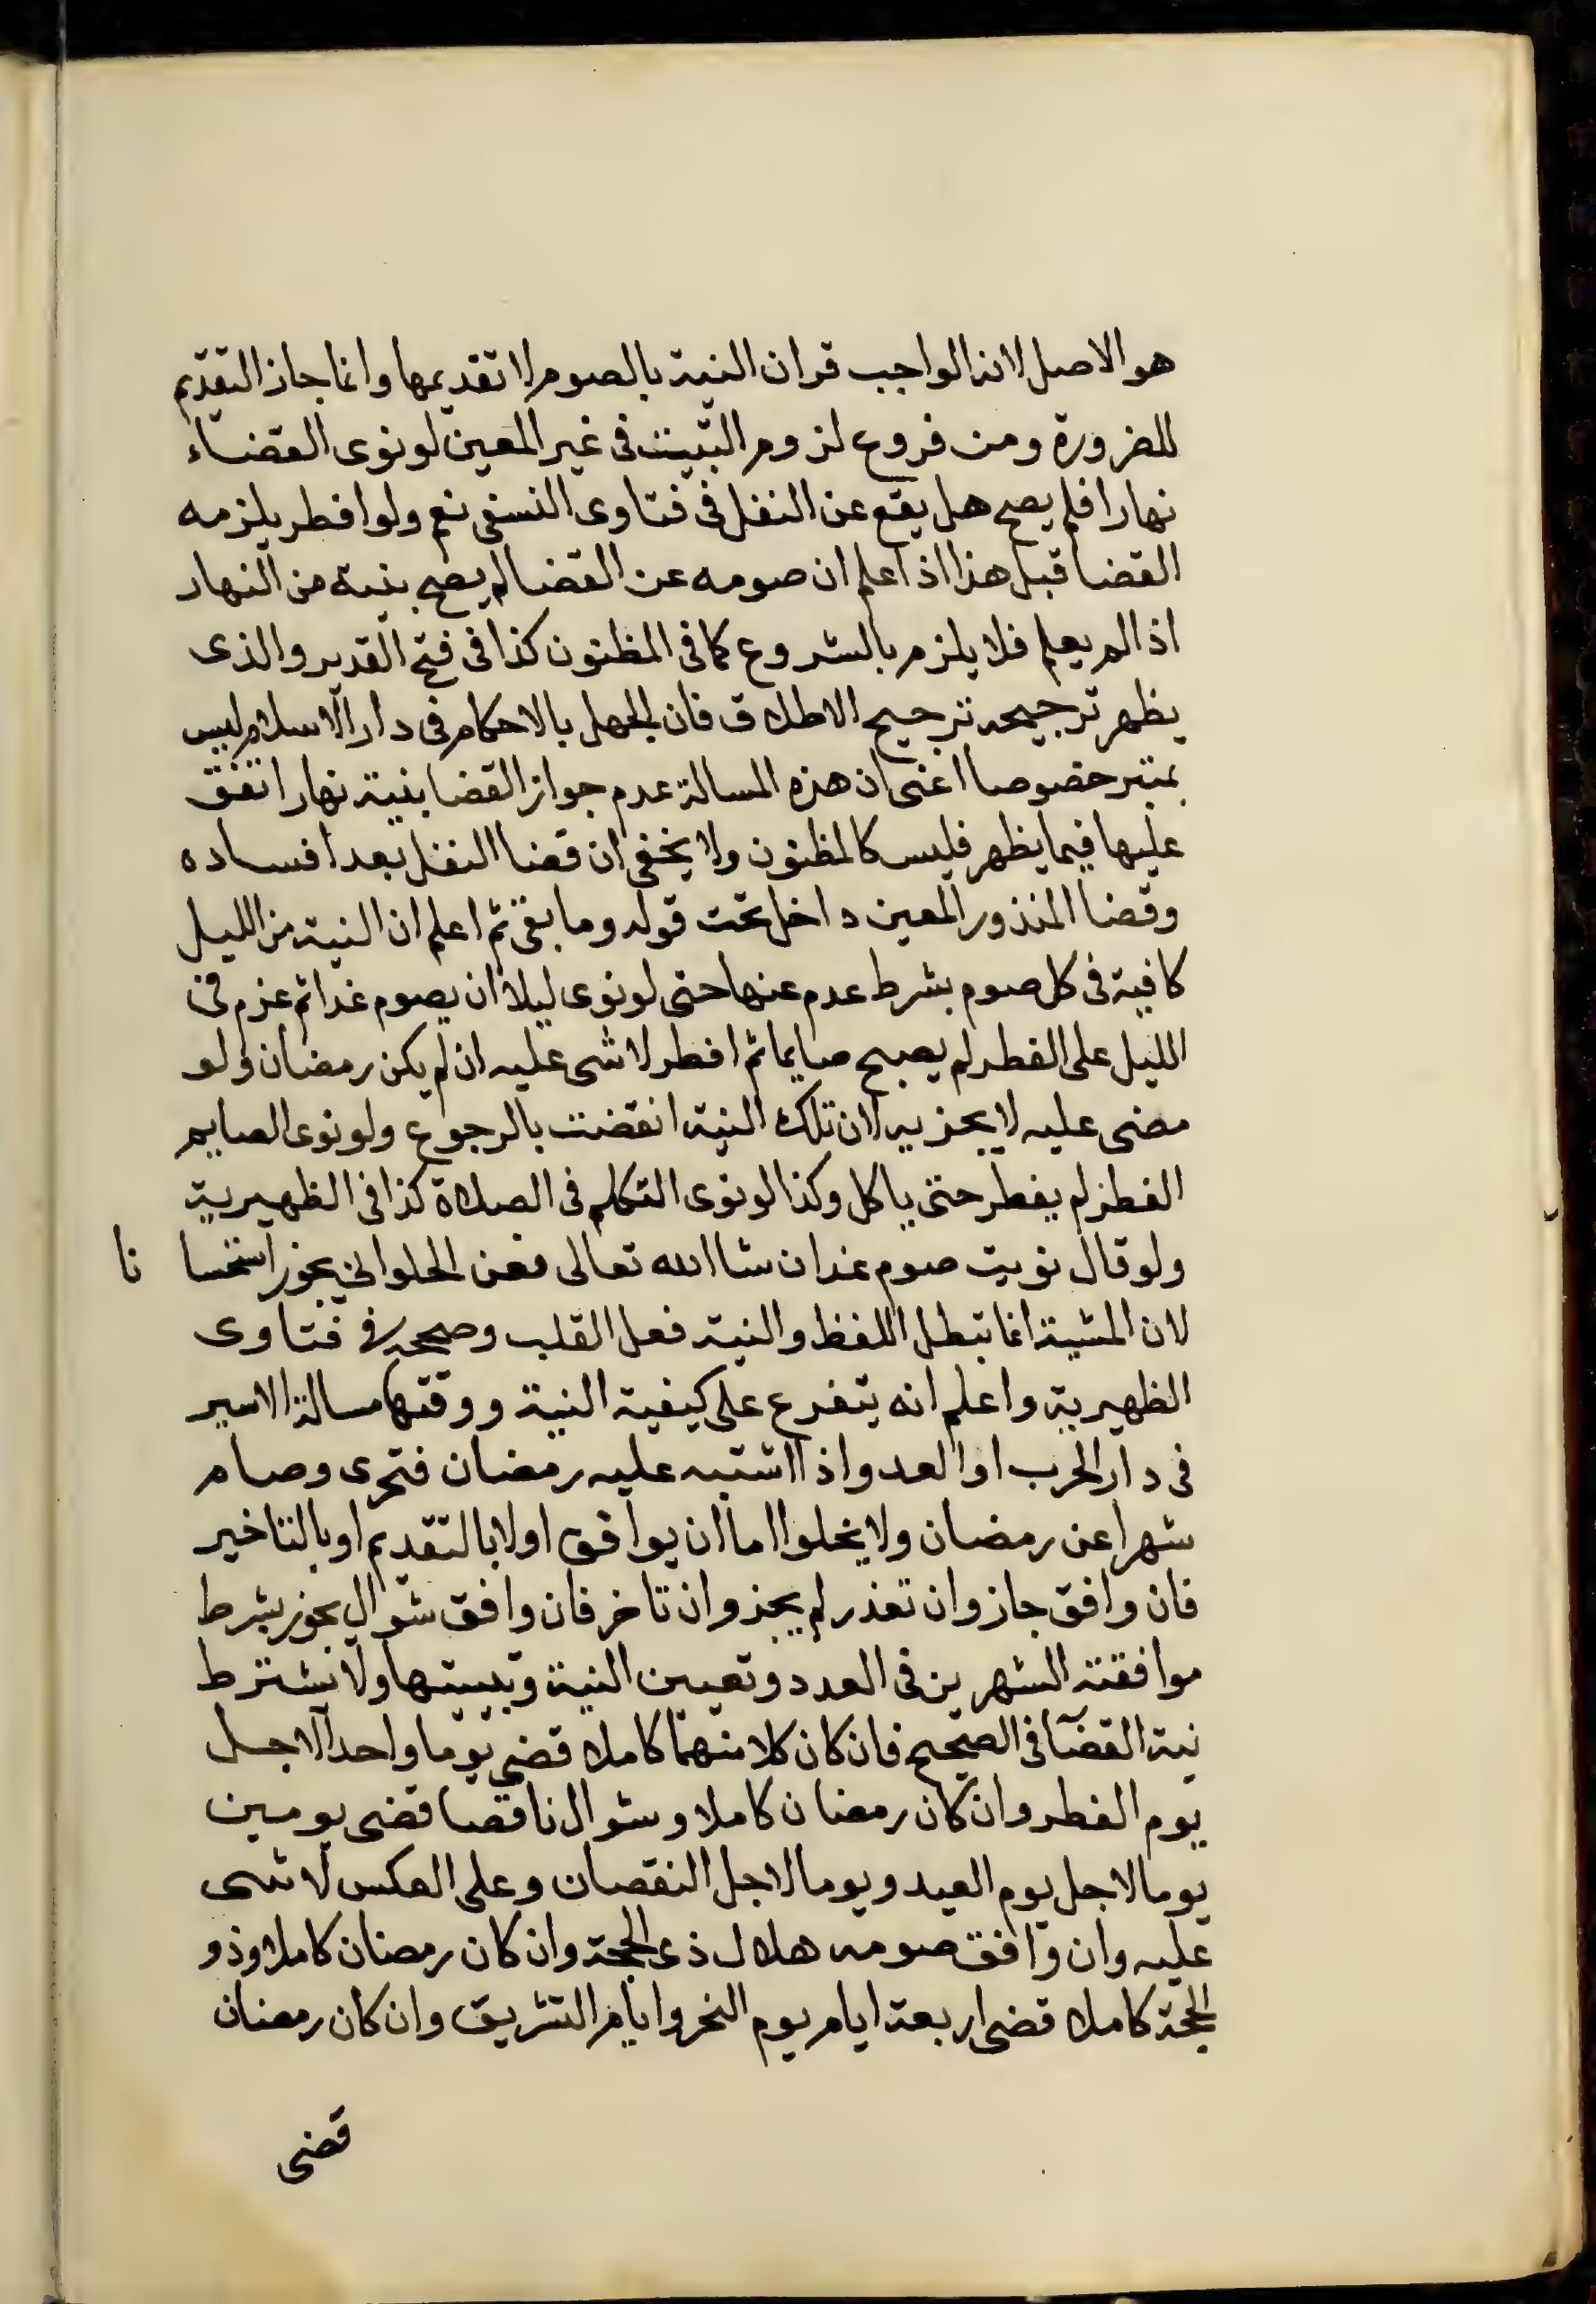 هو الاصل لان الواجب قران النية بالصوم لا تقديمها وانما جاز التقديم
للضرورة ومن فروع لزوم التبييت فى غير المعين لو نوى القضاء
نهارا فلم يصح هل يقع عن النفل فى فتاوى النسفى نعم ولو افطر يلزمه
القضا قبل هذا اذا علم ان صومه عن القضا لم يصح بنية من النهار
اذا لم يعلم فلا يلزم بالشروع كما فى المظنون كذا فى فتح القدير والذى
يظهر ترجيحه ترجيح الاطلاق فان الجهل بالاحكام فى دار الاسلام ليس
بمتبر خصوصا اعنى ان هذه المسالة عدم جواز القضا بنية نهارا اتفق
عليها فيما يظهر فليس كالمظنون ولا يخفى ان قضا النفل بعد افساده
وقضا المنذور المعين داخل تحت قوله وما بقى ثم اعلم ان النية من الليل
كافية فى كل صوم بشرط عدم عنها حتى لو نوى ليلا ان يصوم غدا ثم عزم فى
الليل على الفطر لم يصبح صايما ثم افطر لا شى عليه ان لم يكن رمضان ولو
مضى عليه لا يجزيه لان تلك النية انقضت بالرجوع ولو نوى الصايم
الفطر لم يفطر حتى ياكل وكذا لو نوى التكلم فى الصلاة كذا فى الظهيرية
ولو قال نويت صوم غد ان شا الله تعالى فعن الحلوانى يجوز استحسا نا
لان المشية انما تبطل اللفظ والنية فعل القلب وصححه فى فتاوى
الظهيرية واعلم انه يتفرع على كيفية النية ووقتها مسالة الاسير
فى دار الحرب او العدو اذا اشتبه عليه رمضان فتحرى وصام
شهرا عن رمضان ولا يخلوا اما ان يوافق اولا بالتقديم او بالتاخير
فان وافق جاز وان تعذر لم يجز وان تاخر فان وافق شوال يجوز بشرط
موافقته الشهرين فى العدد وتعيين النية وتبييتها ولا نشترط
نية القضآ فى الصحيح فان كان كلا منهما كاملا قضى يوما واحدا لاجل
يوم الفطر وان كان رمضان كاملا وشوال ناقصا قضى يومين
يوما لاجل يوم العيد ويوما لاجل النقصان وعلى العكس لا شى
عليه وان وافق صومه هلال ذى الحجة وان كان رمضان كاملا وذو
الحجة كاملا قضى اربعة ايام يوم النحر وايام التشريق وان كان رمضان
قضى